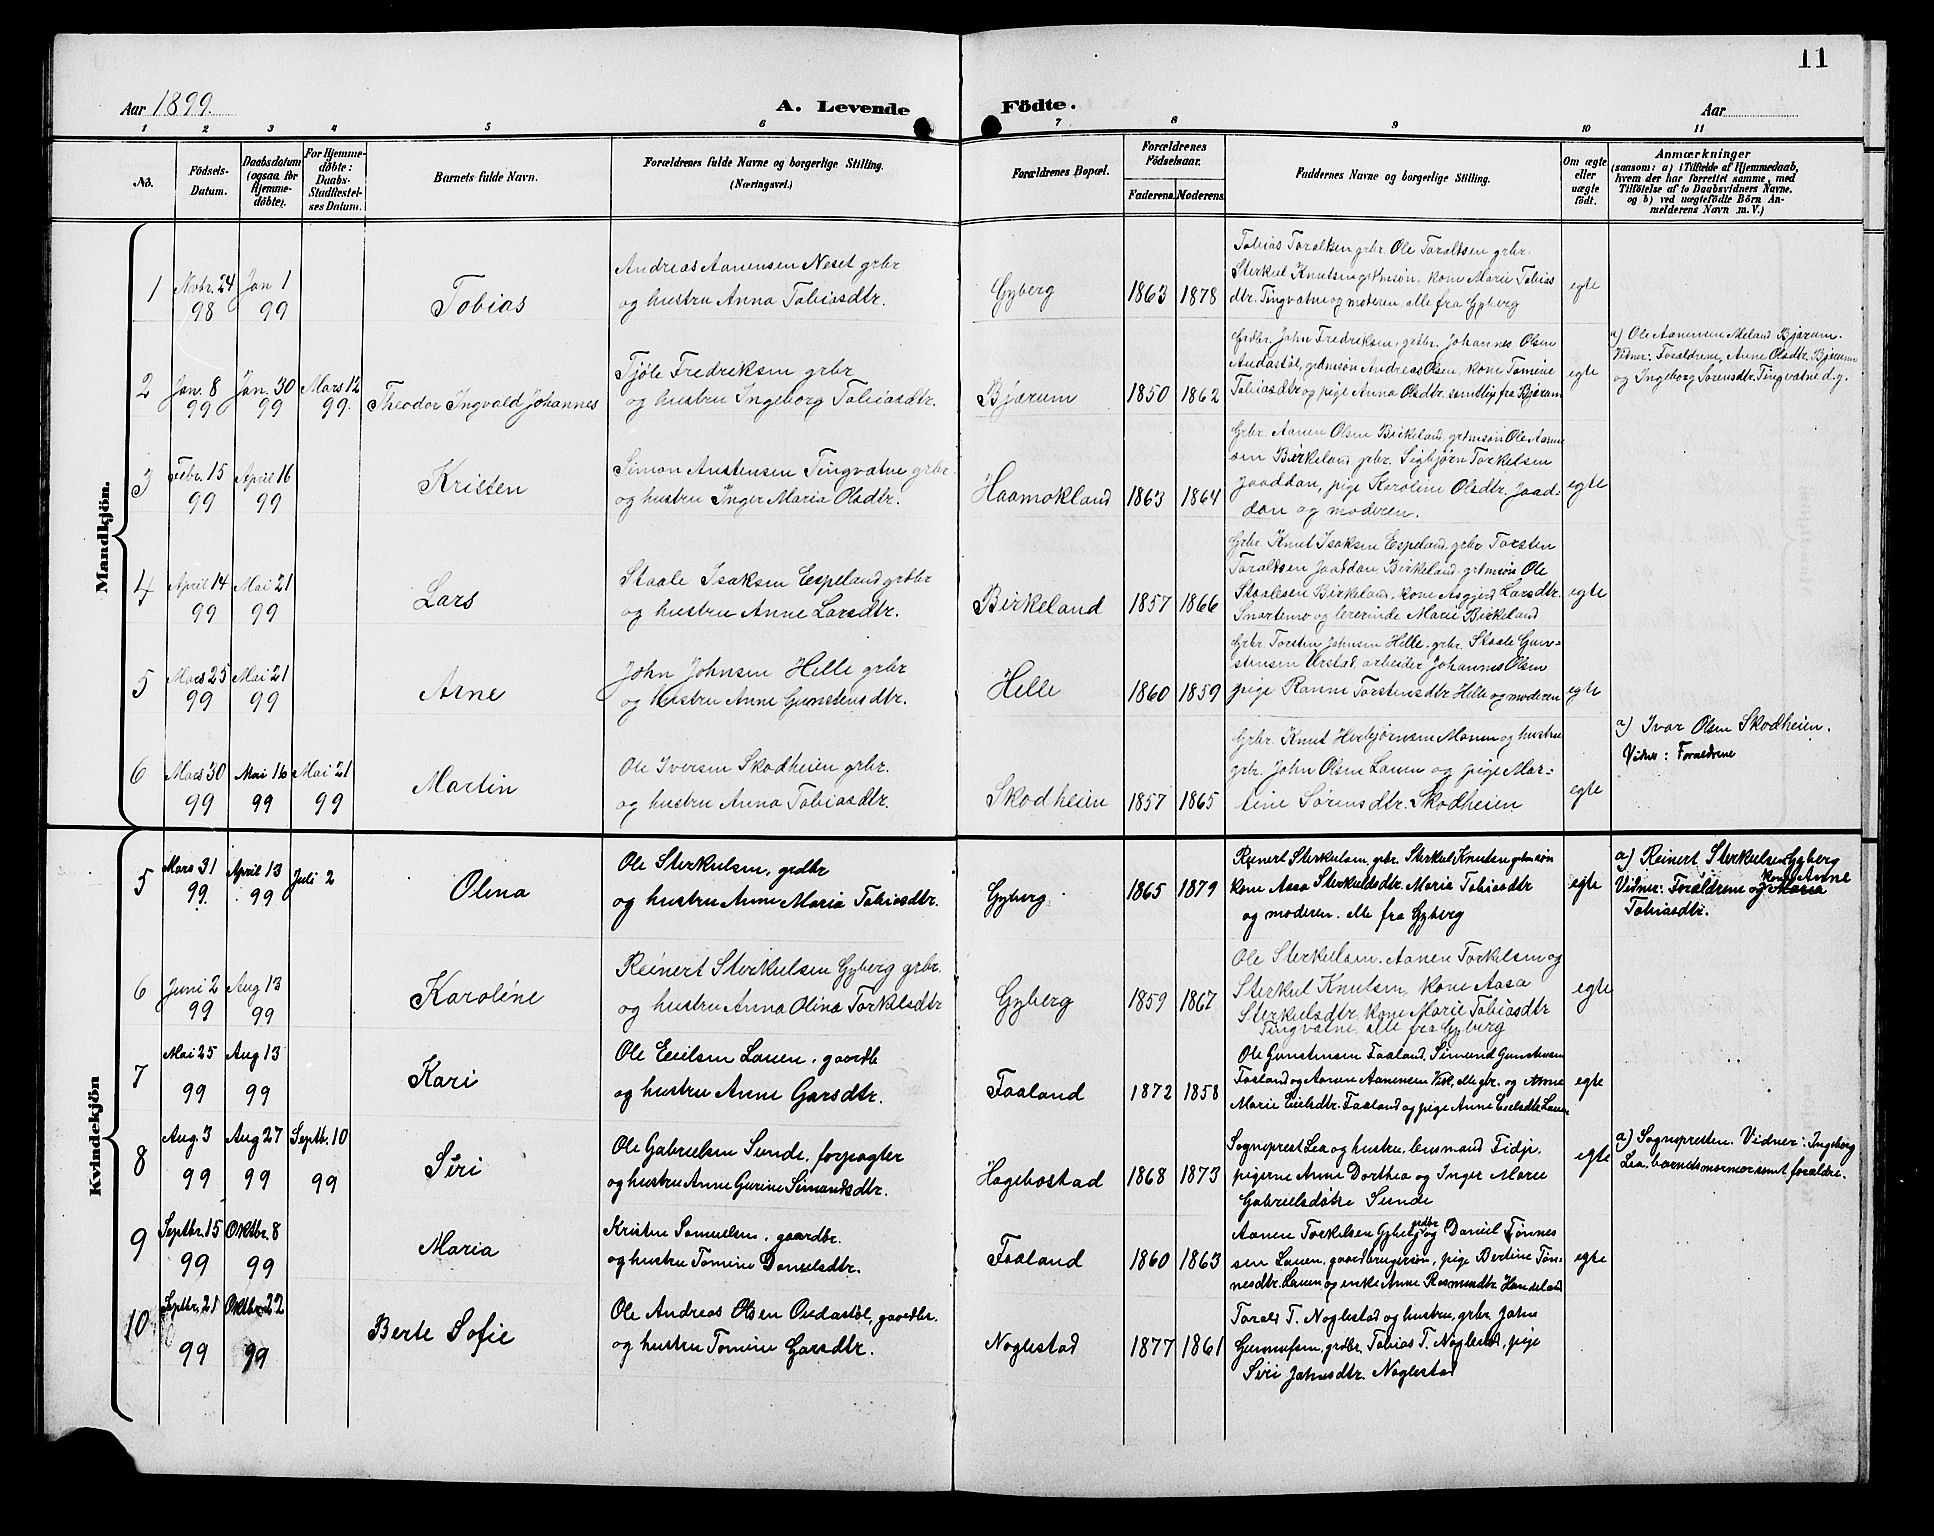 11
Aar 1899. A. Levende Födte. Aar
1 2 3 4 5 6 7 8 9 10 11
No.
Födsels-
Datum.
Daabsdatum
(ogsaa for
Hjemme-
döbte).
For Hjemme-
döbte:
Daabs-
Stadfæstel-
ses Datum.
Barnets fulde Navn.
Forældrenes fulde Navne og borgerlige Stilling.
(Næringsvei.)
Forældrenes Bopæl.
Forældrenes
Födselsaar.
Faderens. Moderens.
Faddernes Navne og borgerlige Stilling.
Om ægte
eller
uægte
födt.
Anmærkninger
(saasom: a) i Tilfælde af Hjemmedaab,
hvem der har forrettet samme, med
Tilföielse af to Daabsvidners Navne.
og b) ved uægtefödte Börn An-
melderens Navn m. V.)
Mandkjön.
1
Novbr. 24
98
Jan 1
99
Tobias
Andreas Aanensen Neset grbr
og hustru Anna Tobiasdtr.
Gyberg
1863 1878
Tobias Taraldsen grbr Ole Taraldsen grbr
Sterkul Knutsen grdmsøn, kone Marie Tobias
dtr. Tingvatne og moderen, alle fra Gyberg
egte
2
Jan. 8
99
Jan. 30
99
Mars 12
99.
Theodor Ingvald Johannes
Tjöle Fredriksen grbr
og hustru Ingeborg Tobiasdtr.
Bjærum
1850 1862
Grdbr. John Fredriksen, grdbr. Johannes Olsen
Andastöl, grdmsön Andreas Olsen, kone Tomine
Tobiasdtr og pige Anna Olsdtr. samtlige fra Bjærum
egte
a) Ole Aanensen Meland Bjærum.
Vidner: Forældrene, Anne Olsdtr. Bjærum
og Ingeborg Sorensdtr. Tingvatne d.y.
3
Febr. 15
99
April 16
99
Kristen
Simon Anstensen Tingvatne grbr.
og hustru Inger Maria Olsdtr.
Haamokland
1863 1864
Grbr. Aanen Olsen Birkeland, grdmsön Ole Aanen
sen Birkeland, grbr. Sigbjørn Torkelsen
Jaaddan, pige Karoline Olsdtr. Jaad-
dan og moderen.
egte
4
April 14
99
Mai 21
99
Lars
Staale Isaksen Espeland grdbr
og hustru Anne Larsdtr.
Birkeland
1857 1866
Grbr. Knut Isaksen Espeland, grbr Torsten
Taraldsen Jaaddan Birkeland, grdmsøn Ole
Staalesen Birkeland, kone Asgjerd Larsdtr.
Snartemo og lærerinde Marie Birkeland
egte
5
Mars 25
99
Mai 21
99
Arne
John Johnsen Helle grbr
og hustru Anne Gunstensdtr.
Helle
1860 1859
Grbr. Torsten Johnsen Helle, grbr. Staale Gun-
stensen Urstad, arbeider Johannes Olsen
pige Ranne Torstensdtr Helle og moderen
egte
6
Mars 30
99
Mai 16
99
Mai 21
99
Martin
Ole Iversen Skodheien grbr.
og hustru Anna Tobiasdtr.
Skodheien
1857 1865
Grbr. Knut Herbjørnsen Monen og hustru
grbr. John Olsen Lauen og pige Mar-
tine Sörensdtr. Skodheien
egte
a) Ivar Olsen Skodheien.
Vidner: Forældrene
Kvindekjön
5
Mars 31
99.
April 13
99
Juli 2
Olena
Ole Sterkulsen, grdbr
og hustru Anne Maria Tobiasdtr.
Gyberg
1865 1879
Reinert Sterkulsen, grbr. Sterkul Knutsen grdmsøn
kone Aasa Sterkulsdtr. Maria Tobiasdtr
og moderen. alle fra Gyberg
egte
a) Reinert Sterkulsen Gyberg
Vidner: Forældrene og kone Anne Maria
Tobiasdtr.
6
Juni 2
99
Aug 13
99
Karoline
Reinert Sterkulsen Gyberg grbr.
og hustru Anna Olina Torkelsdtr
Gyberg
1859 1867
Ole Sterkulsen, Aanen Torkelsen og
Sterkul Knutsen, kone Aasa
Sterkulsdtr, kone Marie Tobiasdtr
Tingvatne, alle fra Gyberg
egte
7
Mai 25
99
Aug 13
99
Kari
Ole Eeielsen Lauen, gaardbr
og hustru Anne Garsdtr.
Faaland
1872 1858
Ole Gunstensen Faaland, Simund Gunstensen
Faaland og Aanen Aanensen Visk, alle gbr. og Anne
Marie Eielsdtr. Faaland og pige Anne Eielsdtr Lauen
egte
8
Aug. 3
99
Aug 27
99
Septb. 10
99
Siri
Ole Gabrielsen Sunde, forpagter
og hustru Anne Gurine Simondsdtr.
Hægebostad
1868 1873
Sogneprest Lea og hustru, lensmand Fidje,
pigerne Anne Dorthea og Inger Marie
Gabrielsdötre Sunde
egte
a) Sognepresten. Vidner: Ingeborg
Lea, barnets mormor samt forældre.
9
Septbr. 15
99
Oktbr. 8
99
Maria
Kristen Samuelsen, gaardbr.
og hustru Tomine Danielsdtr.
Faaland
1860 1863
Aanen Torkelsen Gyberg grdbr og Daniel Tønnes
sen Lauen, gaardbrugersøn, pige Bertine Tøn-
nesdtr. Lauen og enke Anne Rasmusdtr. Handeland
egte
10
Septbr. 21
99
Oktbr. 22
99
Berte Sofie
Ole Andreas Olsen Oudastöl, gaardbr.
og hustru Tomine Garsdtr.
Noglestad
1877 1861
Tarald T. Noglestad og hustru, grbr. Jakne
Gunnufsen, grdbr. Tobias T. Noglestad, pige
Siri Jaknesdtr. Noglestad